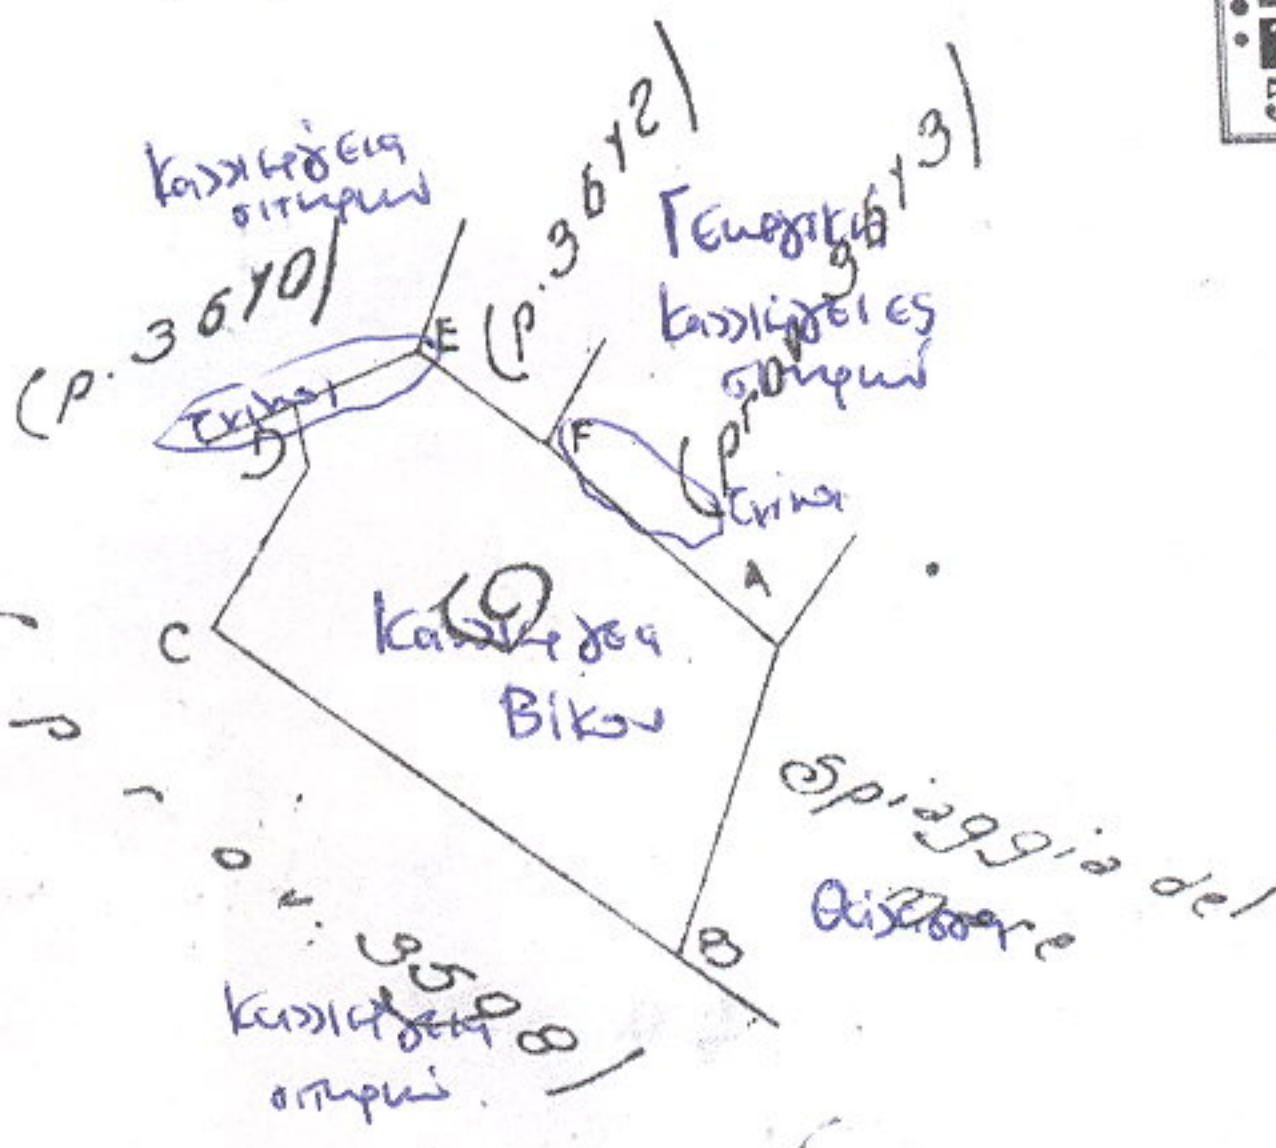 Καλλιέργεια
σιτηρών
(p. 3670)
(p. 3672)
Γεωργικές
καλλιέργειες
σιτηρών
E
F
Σκίνοι
D
Σκίνοι
A
C
Καλλιέργεια
Βίκου
Spiaggia del
Mare
Θάλασσα
B
3598)
Καλλιέργεια
σιτηρών